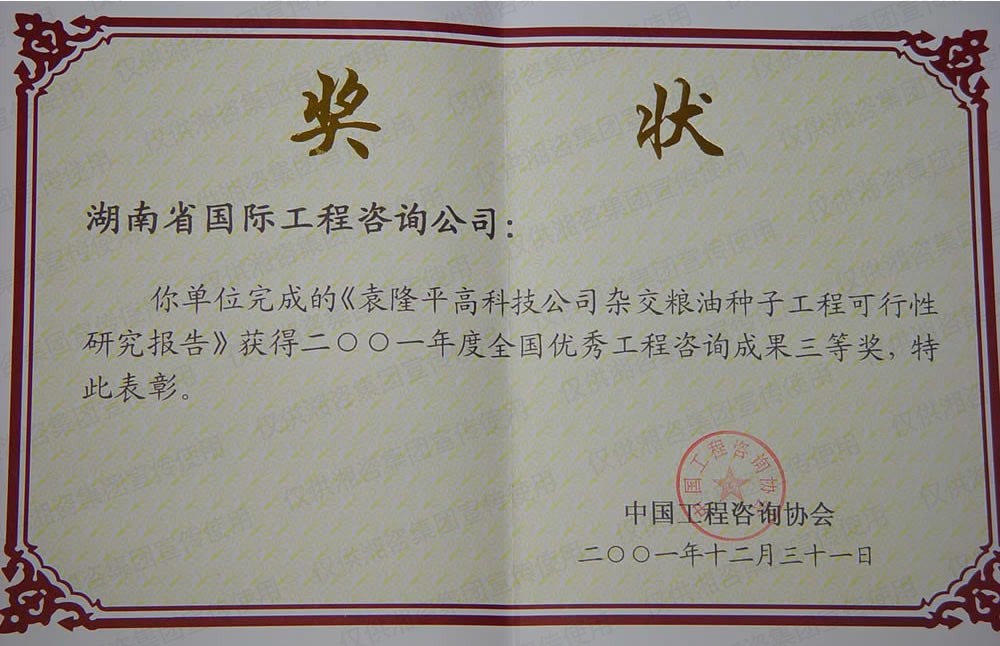 奖 状
湖南省国际工程咨询公司:
你单位完成的《袁隆平高科技公司杂交粮油种子工程可行性
研究报告》获得二〇〇一年度全国优秀工程咨询成果三等奖,特
此表彰。
中国工程咨询协会
中国工程咨询协会
二〇〇一年十二月三十一日
仅供湘咨集团宣传使用